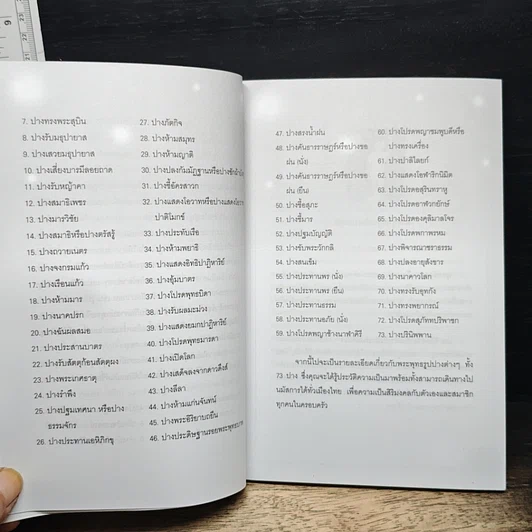 7. ปางทรงพระสุบิน
8. ปางรับมธุปายาส
9. ปางเสวยมธุปายาส
10. ปางเสี่ยงบารมีลอยถาด
11. ปางรับหญ้าคา
12. ปางสมาธิเพชร
13. ปางมารวิชัย
14. ปางสมาธิหรือปางตรัสรู้
15. ปางถวายเนตร
16. ปางจงกรมแก้ว
17. ปางเรือนแก้ว
18. ปางห้ามมาร
19. ปางนาคปรก
20. ปางฉันผลสมอ
21. ปางประสานบาตร
22. ปางรับสัตตุก้อนสัตตุผง
23. ปางพระเกศธาตุ
24. ปางรำพึง
25. ปางปฐมเทศนา หรือปาง
ธรรมจักร
26. ปางประทานเอหิภิกขุ
27. ปางภัตกิจ
28. ปางห้ามสมุทร
29. ปางห้ามญาติ
30. ปางปลงกัมมัฏฐานหรือปางชักผ้า
31. ปางชี้อัครสาวก
32. ปางแสดงโอวาทหรือปางแสดงโอวาท
ปาติโมกข์
33. ปางประทับเรือ
34. ปางห้ามพยาธิ
35. ปางแสดงอิทธิปาฏิหาริย์
36. ปางอุ้มบาตร
37. ปางโปรดพุทธบิดา
38. ปางรับผลมะม่วง
39. ปางแสดงยมกปาฏิหาริย์
40. ปางโปรดพุทธมารดา
41. ปางเปิดโลก
42. ปางเสด็จลงจากดาวดึงส์
43. ปางลีลา
44. ปางห้ามแก่นจันทน์
45. ปางพระอิริยาบถยืน
46. ปางประดิษฐานรอยพระพุทธบาท
47. ปางสรงน้ำฝน
48. ปางคันธารราษฎร์หรือปางขอ
ฝน (นั่ง)
49. ปางคันธารราษฎร์หรือปางขอ
ฝน (ยืน)
50. ปางชี้อสุภะ
51. ปางชี้มาร
52. ปางปฐมบัญญัติ
53. ปางขับพระวักกลิ
54. ปางสนเข็ม
55. ปางประทานพร (นั่ง)
56. ปางประทานพร (ยืน)
57. ปางประทานธรรม
58. ปางประทานอภัย (นั่ง)
59. ปางโปรดพญาช้างนาฬาคิรี
60. ปางโปรดพญาชมพูบดีหรือ
ปางทรงเครื่อง
61. ปางปาลิไลยก์
62. ปางแสดงโอฬาริกนิมิต
63. ปางโปรดอสุรินทราหู
64. ปางโปรดอาฬวกยักษ์
65. ปางโปรดองคุลิมาลโจร
66. ปางโปรดพกาพรหม
67. ปางพิจารณาชราธรรม
68. ปางปลงอายุสังขาร
69. ปางนาคาวโลก
70. ปางทรงรับอุทกัง
71. ปางทรงพยากรณ์
72. ปางโปรดสุภัททปริพาชก
73. ปางปรินิพพาน
จากนี้ไปจะเป็นรายละเอียดเกี่ยวกับพระพุทธรูปปางต่างๆ ทั้ง
73 ปาง ซึ่งคุณจะได้รู้ประวัติความเป็นมาพร้อมทั้งสามารถเดินทางไป
นมัสการได้ทั่วเมืองไทย เพื่อความเป็นสิริมงคลกับตัวเองและสมาชิก
ทุกคนในครอบครัว